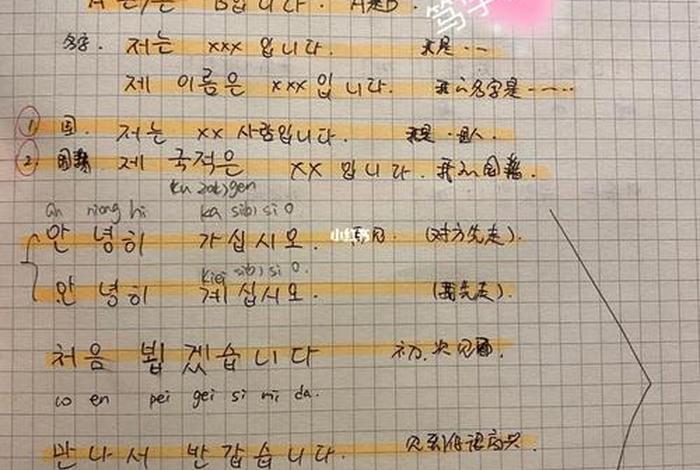 입니다. A是B.
名字. 저는 xxx 입니다. 我是…
제 이름은 xxx입니다. 我的名字是……
① 国. 저는 xx 사람입니다. 我是·国人.
② 国籍 제 국적은 xx 입니다. 我的国籍.
an niang hi ka sibi si o
안녕히 가십시오. 再见. (对方先走).
小红书
kiei sibi si o.
안녕히 계십시오. (我先走).
처음 뵙겠습니다 初次见面.
co en pei gei si mi da.
반나서 반갑습니다. 见到你很高兴.